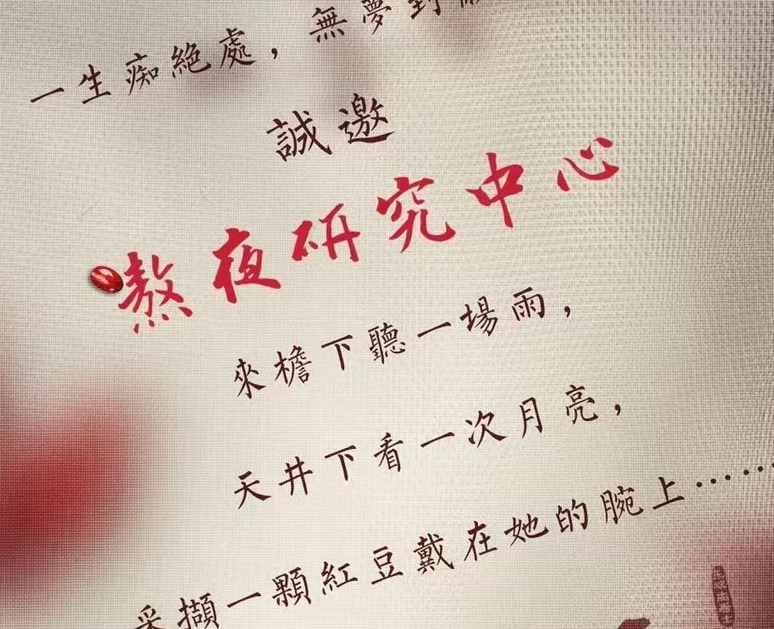 一生痴絕處，無夢到
誠邀
熬夜研究中心
來檐下聽一場雨，
天井下看一次月亮，
采擷一顆紅豆戴在她的腕上……